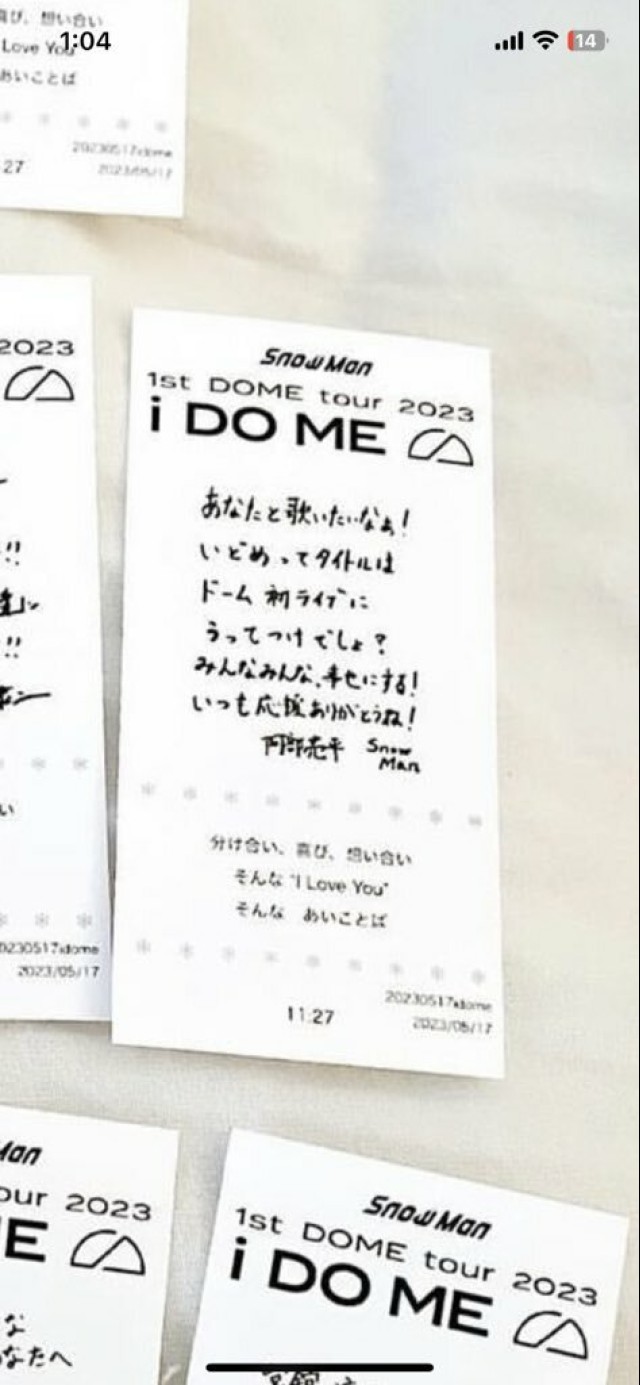 喜び、想い合い
1:04
14
Love You"
あいことば
20230517idome
27
2023/05/17
2023
!!
!!
20230517idome
2023/05/17
Snow Man
1st DOME tour 2023
i DO ME
あなたと歌いたいなぁ!
いどめってタイトルは
ドーム初ライブに
うってつけでしょ?
みんなみんな、幸せにする!
いつも応援ありがとうね!
阿部亮平 Snow
Man
分け合い、喜び、想い合い
そんな "I Love You"
そんな あいことば
20230517idome
11:27
2023/05/17
Man
our 2023
E
な
なたへ
Snow Man
1st DOME tour 2023
i DO ME